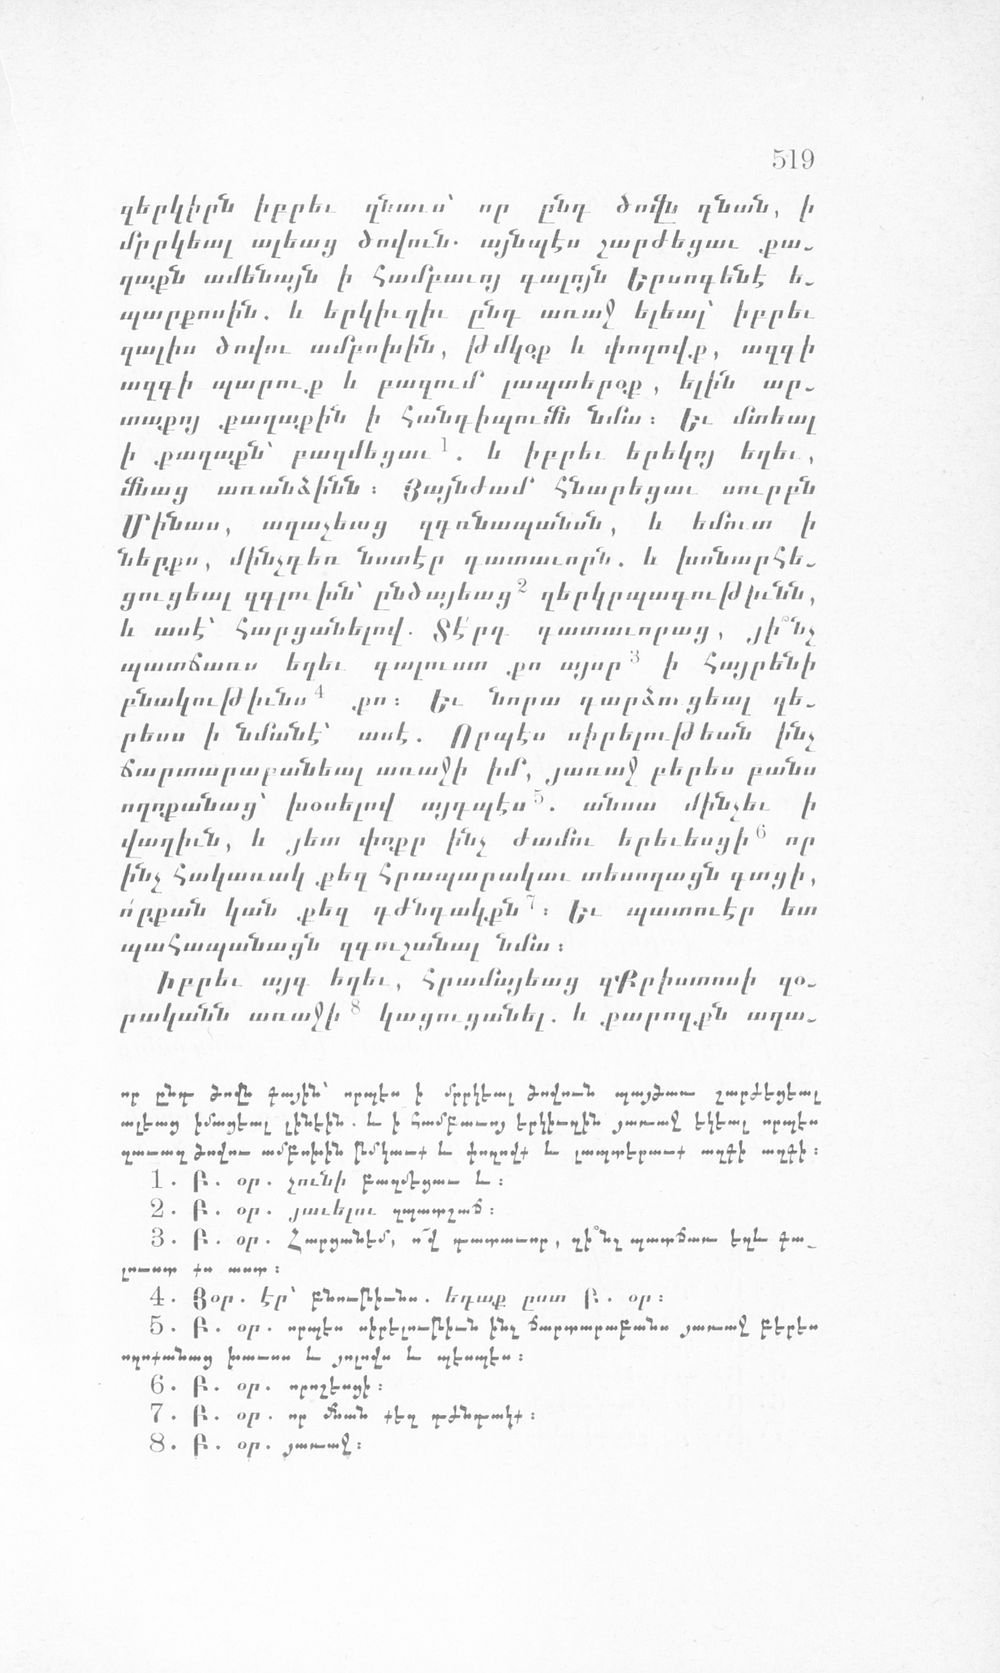 519
զերկիրն իբրեւ զնաւս՝ որ ընդ ծովն գնան, ի
մրրկեալ ալեաց ծովուն. այնպէս շարժեցաւ քա-
ղաքն ամենայն ի համբաւոյ գալոյն Երմոգենէ ե-
պարքոսին. և երկիւղիւ ընդ առաջ ելեալ՝ իբրեւ
զալիս ծովու ամբոխին, թմկօք և փողովք, ազգի
ազգի պարուք և բազում լապտերօք, ելին ար-
տաքոյ քաղաքին ի հանդիպումն նմա: Եւ մտեալ
ի քաղաքն՝ բազմեցաւ 1. և իբրեւ երեկոյ եղեւ,
մնաց առանձինն: Յայնժամ հնարեցաւ սուրբն
Մինաս, աղաչեաց զդռնապանսն, և եմուտ ի
ներքս, մինչդեռ նստէր դատաւորն. և խոնարհե-
ցուցեալ զգլուխն՝ ընծայեաց 2 զերկրպագութիւնն,
և ասէ՝ հարցանելով. Տէ՛րդ դատաւորաց, յի՞նչ
պատճառս եղեւ գալուստ քո այսր 3 ի հայրենի
բնակութիւնս 4 քո: Եւ նորա դարձուցեալ զե-
րեսս ի նմանէ՝ ասէ. Որպէս սիրելութեան ինչ
ճարտարաբանեալ առաջի իմ, յառաջ բերես բանս
ողոքանաց՝ խօսելով այդպէս 5. անսա մինչեւ ի
վաղիւն, և յետ փոքր ինչ ժամու երեւեսցի 6 որ
ինչ հակառակ քեզ հրապարակաւ տեսողացն գտցի,
ո՛րքան կան քեզ դժնդակքն 7: Եւ պատուէր ետ
պահապանացն զգուշանալ նմա:
Իբրեւ այդ եղեւ, հրամայեաց զՔրիստոսի զօ-
րականն առաջի 8 կացուցանել. և քարոզքն աղա-
որ ընդ ծովն գային՝ որպէս ի մրրկեալ ծովուն պայծառ շարժեցեալ
ալեաց իմացեալ լինէին. և ի համբաւոյ երկիւղին յառաջ եկեալ որպէս
զառաղ ծովու ամբոխին թմկաւք և փողովք և լապտերաւք ազգի ազգի:
1. Բ. օր. չունի բազմեցաւ և:
2. Բ. օր. յաւելու զպատշաճ:
3. Բ. օր. Հարցանեմ, ո՜վ դատաւոր, զի՞նչ պատճառ եղև գա-
լուստ քո աստ:
4. Յօր. էր՝ բնութիւնս. եդաք ըստ Բ. օր:
5. Բ. օր. որպէս սիրելութիւն ինչ ճարտարաբանս յառաջ բերես
ողոքանաց խաւսս և յոլովս և պէսպէս:
6. Բ. օր. որոշեսցի:
7. Բ. օր. որ մնան քեզ դժնդակք:
8. Բ. օր. յառաջ: